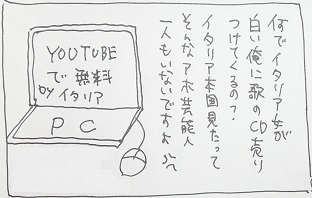 何でイタリア女が
白い俺に歌のCD売り
つけてくるの?
イタリア本国見たって
そんなアホ芸能人
一人もいないですよ
YOUTUBE
で無料
byイタリア
PC